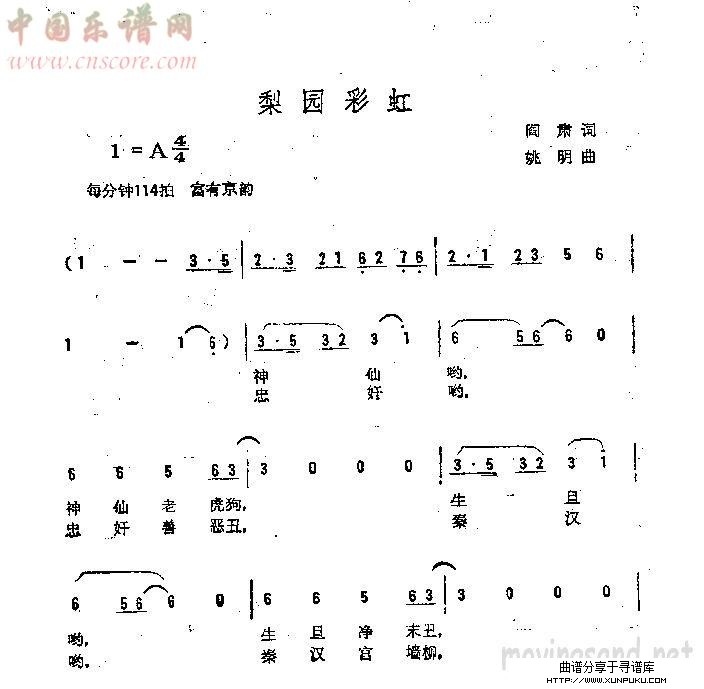 中国乐谱网
www.cnscore.com
梨园彩虹
阎肃词
1=A 4/4
姚明曲
每分钟114拍 富有京韵
(1 - - 3·5 | 2·3 21 62 76 | 2·1 23 5 6 |
1 - 1 6) | 3·5 32 3 1 | 6 56 6 0 |
神 仙 哟,
忠 奸 哟,
6 6 5 63 | 3 0 0 0 | 3·5 32 3 1 |
神 仙 老 虎狗, 生 旦
忠 奸 善 恶丑, 秦 汉
6 56 6 0 | 6 6 5 63 | 3 0 0 0 |
哟, 生 旦 净 末丑,
哟, 秦 汉 宫 墙柳,
movingsand.net
曲谱分享于寻谱库
HTTP://WWW.XUNPUKU.COM